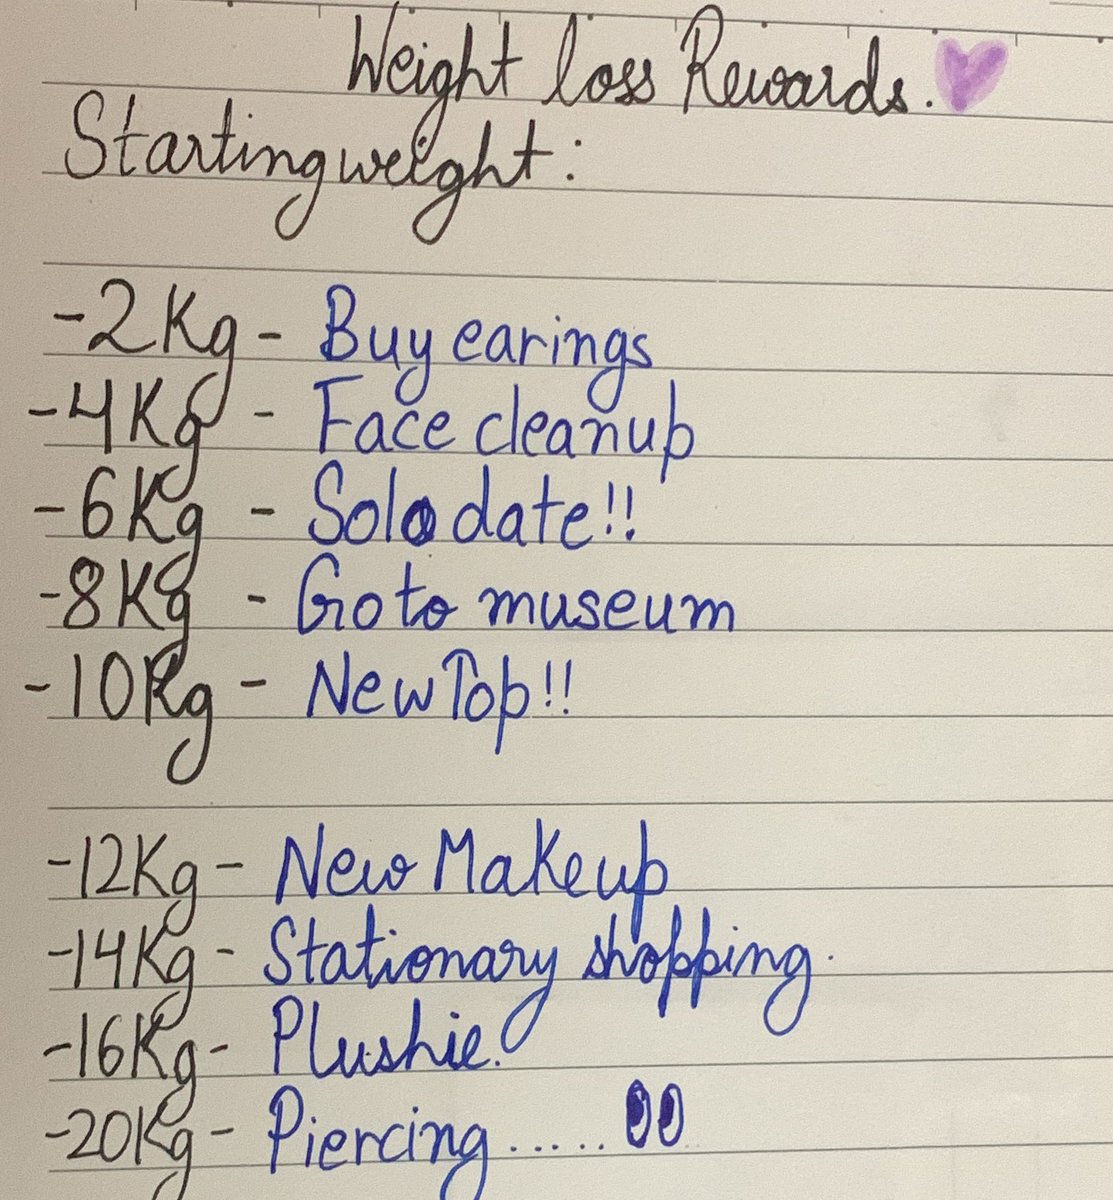 Weight loss Rewards.
Starting weight:
-2Kg - Buy earings
-4Kg - Face cleanup
-6Kg - Solo date!!
-8Kg - Go to museum
-10Kg - New Top!!
-12Kg - New Makeup
-14Kg - Stationary shopping.
-16Kg - Plushie.
-20Kg - Piercing.....